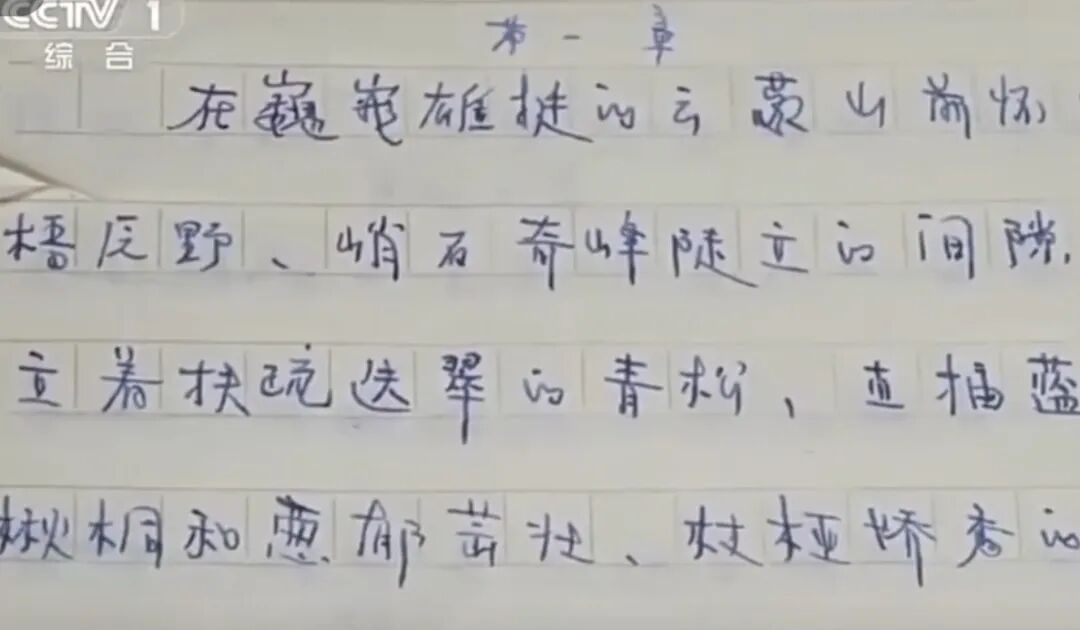 CCTV 1
综合
第一章
在巍巍雄挺的云蒙山前怀
立的间隙,
立着扶疏迭翠的青松、直插蓝
楸桐和葱郁茁壮、枝桠娇秀的